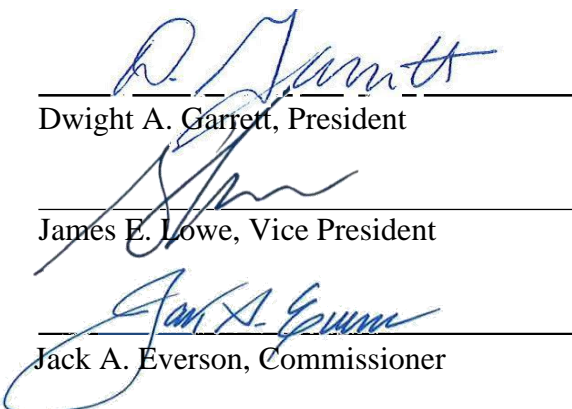 D. Garritt
Dwight A. Garrett, President
James E. Lowe, Vice President
Jack A. Everson, Commissioner